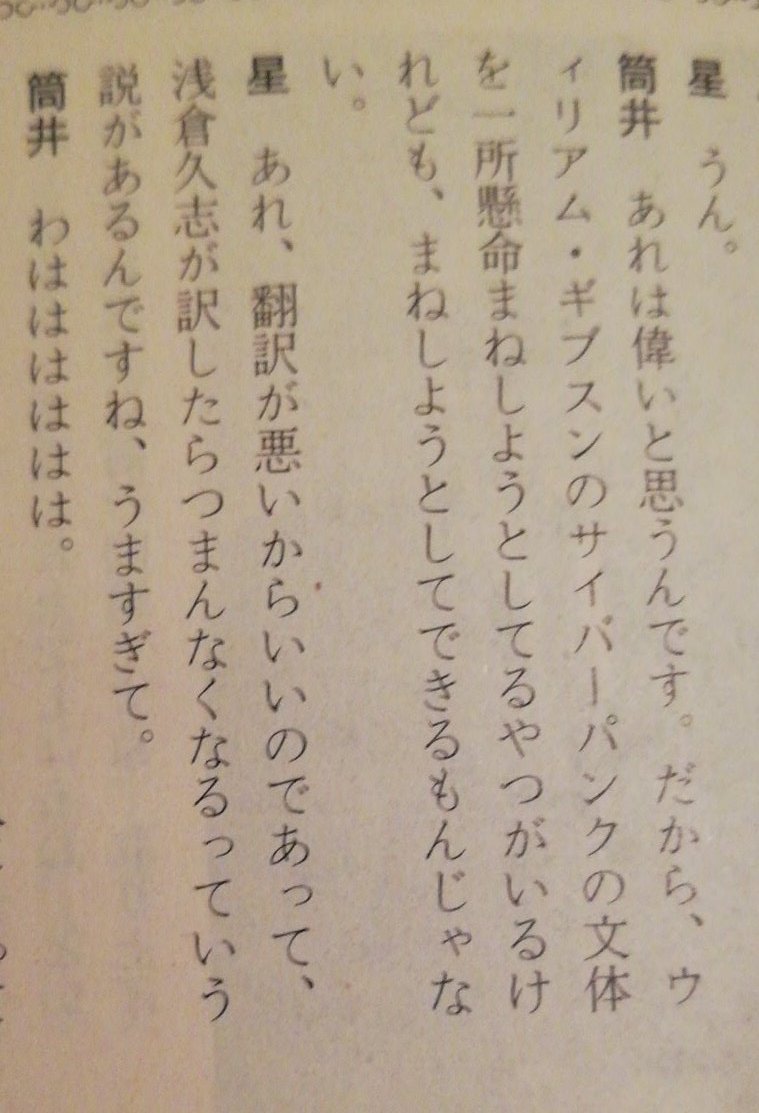 星　うん。
筒井　あれは偉いと思うんです。だから、ウ
ィリアム・ギブスンのサイバーパンクの文体
を一所懸命まねしようとしてるやつがいるけ
れども、まねしようとしてできるもんじゃな
い。
星　あれ、翻訳が悪いからいいのであって、
浅倉久志が訳したらつまんなくなるっていう
説があるんですね、うますぎて。
筒井　わははははははは。